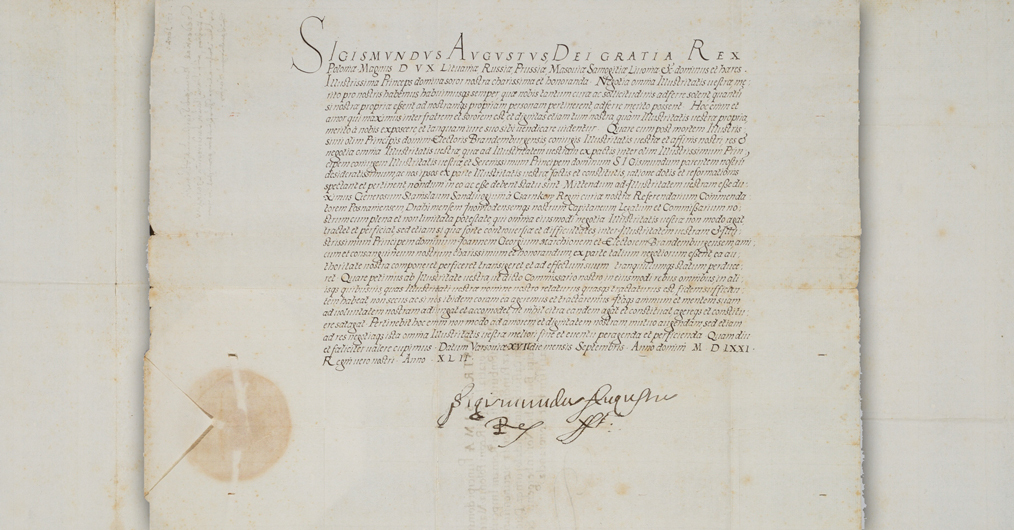 SIGISMVNDVS AVGVSTVS, DEI GRATIA REX
Poloniæ Magnus DVX Lituaniæ Russiæ Prussiæ Masouiæ Samogitiæ Liuoniæ &c dominus et hæres.
Illustrissima Princeps domina soror nostra charissima et honoranda. Negotia omnia Illustritatis uestræ me,
rito pro nostris habemus habuimusq semper quæ nobis tantum curæ ac solicitudinis adferre solent quanti
si nostra propria essent ad nostramq propriam personam pertinerent, adferre merito possent. Hoc enim et
amor qui maximus inter fratrem et sororem est et dignitas etiam tum nostra, quam Illustritatis uestræ propria,
merito à nobis exposcere et tanquam iure suo sibi uendicare uidentur. Quare cum post mortem Illustris
simi olim Principis domini Electoris Brandemburgensis, coniugis Illustritatis uestræ et affinis nostri res &
negotia omnia Illustritatis uestræ quæ ad Illustritatem uestram ex pactis inter olim Illustrissimum Prin,
cipem coniugem Illustritatis uestræ et Serenissimum Principem dominum SIGismundum parentem nostrum
desideratissimum, ac nos ipsos ex parte Illustritatis uestræ factis et constitutis, ratione dotis et reformationis
spectant et pertinent, nondum in eo ac esse debent statu sint. Mittendum ad Illustritatem uestram esse du,
ximus Generosum Stanislaum Sandiuogium à Czarnkow Regni curiæ nostræ Referendarium Commenda
torem Posnaniensem Drahimensem nostrum Capitaneum Legatum et Commissarium no,
strum cum plena et non limitata potestate qui omnia eiusmodi negotia Illustritatis uestræ non modo agat
tractet et perficiat, sed etiam si quæ forte controuersiæ et difficultates inter Illustritatem uestram & Illu,
strissimum Principem dominum Joannem Georgium Marchionem et Electorem Brandemburgensem, ami
cum et consanguineum nostrum charissimum et honorandum ex parte talium negotiorum essent, ea au
thoritate nostra componeret perficeret transigeret et ad effectum suum tranquillumq statum perduce,
ret. Quare petimus ab Illustritate uestra ut dicto Commissario nostro in eiusmodi rebus omnibus in ali,
isq quibusuis, quas Illustritati uestræ nomine nostro relaturus quasq tractaturus est, fidem sufficien
tem habeat non secus ac si nos ibidem coram ea ageremus et tractaremus,
ad uoluntatem nostram adiungat et accomodet, ac nihil citra eandem agat et constituat,
ere satagat. Pertinebit hoc enim non modo ad amorem et dignitatem nostram mutuo augendam sed etiam
ad res negotiaq ista omnia Illustritatis uestræ meliori fine et euentu peragenda et perficienda. Quam diu
et fæliciter ualere cupimus. Datum Varsouiæ XVII die mensis Septembris. Anno domini M D LXXI.
Regni uero nostri Anno XLII
Sigismundus Augustus
Rex